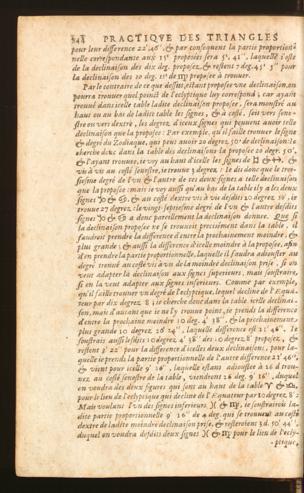 348 PRACTIQVE DES TRIANGLES
pour leur difference 22' 46", & par consequent la partie proportion-
nelle correspondante aux 15' proposées sera 5' 41", laquelle ostée
de la declinaison des dix deg. proposez, & restent 7 deg. 45' 3" pour
la declinaison des 10 deg. 15' de ♍ propose à trouuer.
Par le contraire de ce que dessus, estant proposée vne declinaison, on
pourra trouuer quel poinct de l'ecliptique luy correspond; car ayant
trouué dans icelle table ladite declinaison proposée, sera monstré au
haut ou au bas de ladite table les signes, & à costé, soit vers senes-
tre ou vers dextre, les degrez d'iceux signes qui peuuent auoir telle
declinaison que la proposée: Par exemple, qu'il faille trouuer le signe
& degré du Zodiaque, qui peut auoir 20 degrez 30' de declinaison: Ie
cherche donc dans la table des declinaisons la proposée 20 degr. 30',
& l'ayant trouuée, ie voy au haut d'icelle les signes de ♊ & ♐, &
vis à vis au costé senestre, ie trouue 3 degrez: Ie dis donc que le troi-
siesme degré de l'vn & l'autre de ces deux signes a telle declinaison
que la proposée: mais ie voy aussi qu'au bas de la table il y a les deux
signes ♑ & ♋, & au costé dextre vis à vis desdits 20 degrez 30', ie
trouue 27 degrez: le vingt-septiesme degré de l'vn & l'autre desdits
signes ♑ & ♋ a donc pareillement la declinaison donnée. Que si
la declinaison proposée ne se trouuoit precisément dans la table, il
faudroit prendre la difference d'entre la prochainement moindre, &
plus grande; & aussi la difference d'icelle moindre à la proposée, afin
d'en prendre la partie proportionnelle, laquelle il faudra adiouster au
degré trouué au costé vis à vis de la moindre declinaison prise, si on
veut adapter la declinaison aux signes superieurs, mais soustraire,
si on la veut adapter aux signes inferieurs. Comme par exemple,
qu'il faille trouuer vn degré de l'ecliptique, lequel decline de l'Equa-
teur par dix degrez 8; ie cherche donc dans la table icelle declinai-
son, mais d'autant que ie ne l'y trouue point, ie prends la difference
d'entre la prochaine moindre 10 deg. 4' 38", & la prochainement
plus grande 10 degrez 26' 24", laquelle difference est 21' 46". Ie
soustrais aussi lesdits 10 degrez 4' 38" des 10 degrez 8' proposez, &
restent 3' 22" pour la difference d'icelles deux declinaisons, pour la-
quelle ie prends la partie proportionnelle de l'autre difference 21' 46",
& vient pour icelle 9' 16", laquelle estant adioustée à 26 d trouuez
au costé senestre de la table, viendront 26 deg. 9' 16", duquel
on vendra des deux signes qui sont au haut de la table ♈ & ♎,
pour le lieu de l'ecliptique qui decline de l'Equateur par 10 degrez 8':
Mais voulant l'vn des signes inferieurs ♓ & ♍, ie soustrairois la-
dite partie proportionnelle 9' 16" de 4 deg. qui se trouuent au costé
dextre de ladite moindre declinaison prise, & resteroient 3 d. 50' 44",
duquel on vendra desdits deux signes ♓ & ♍ pour le lieu de l'ecly-
ptique,